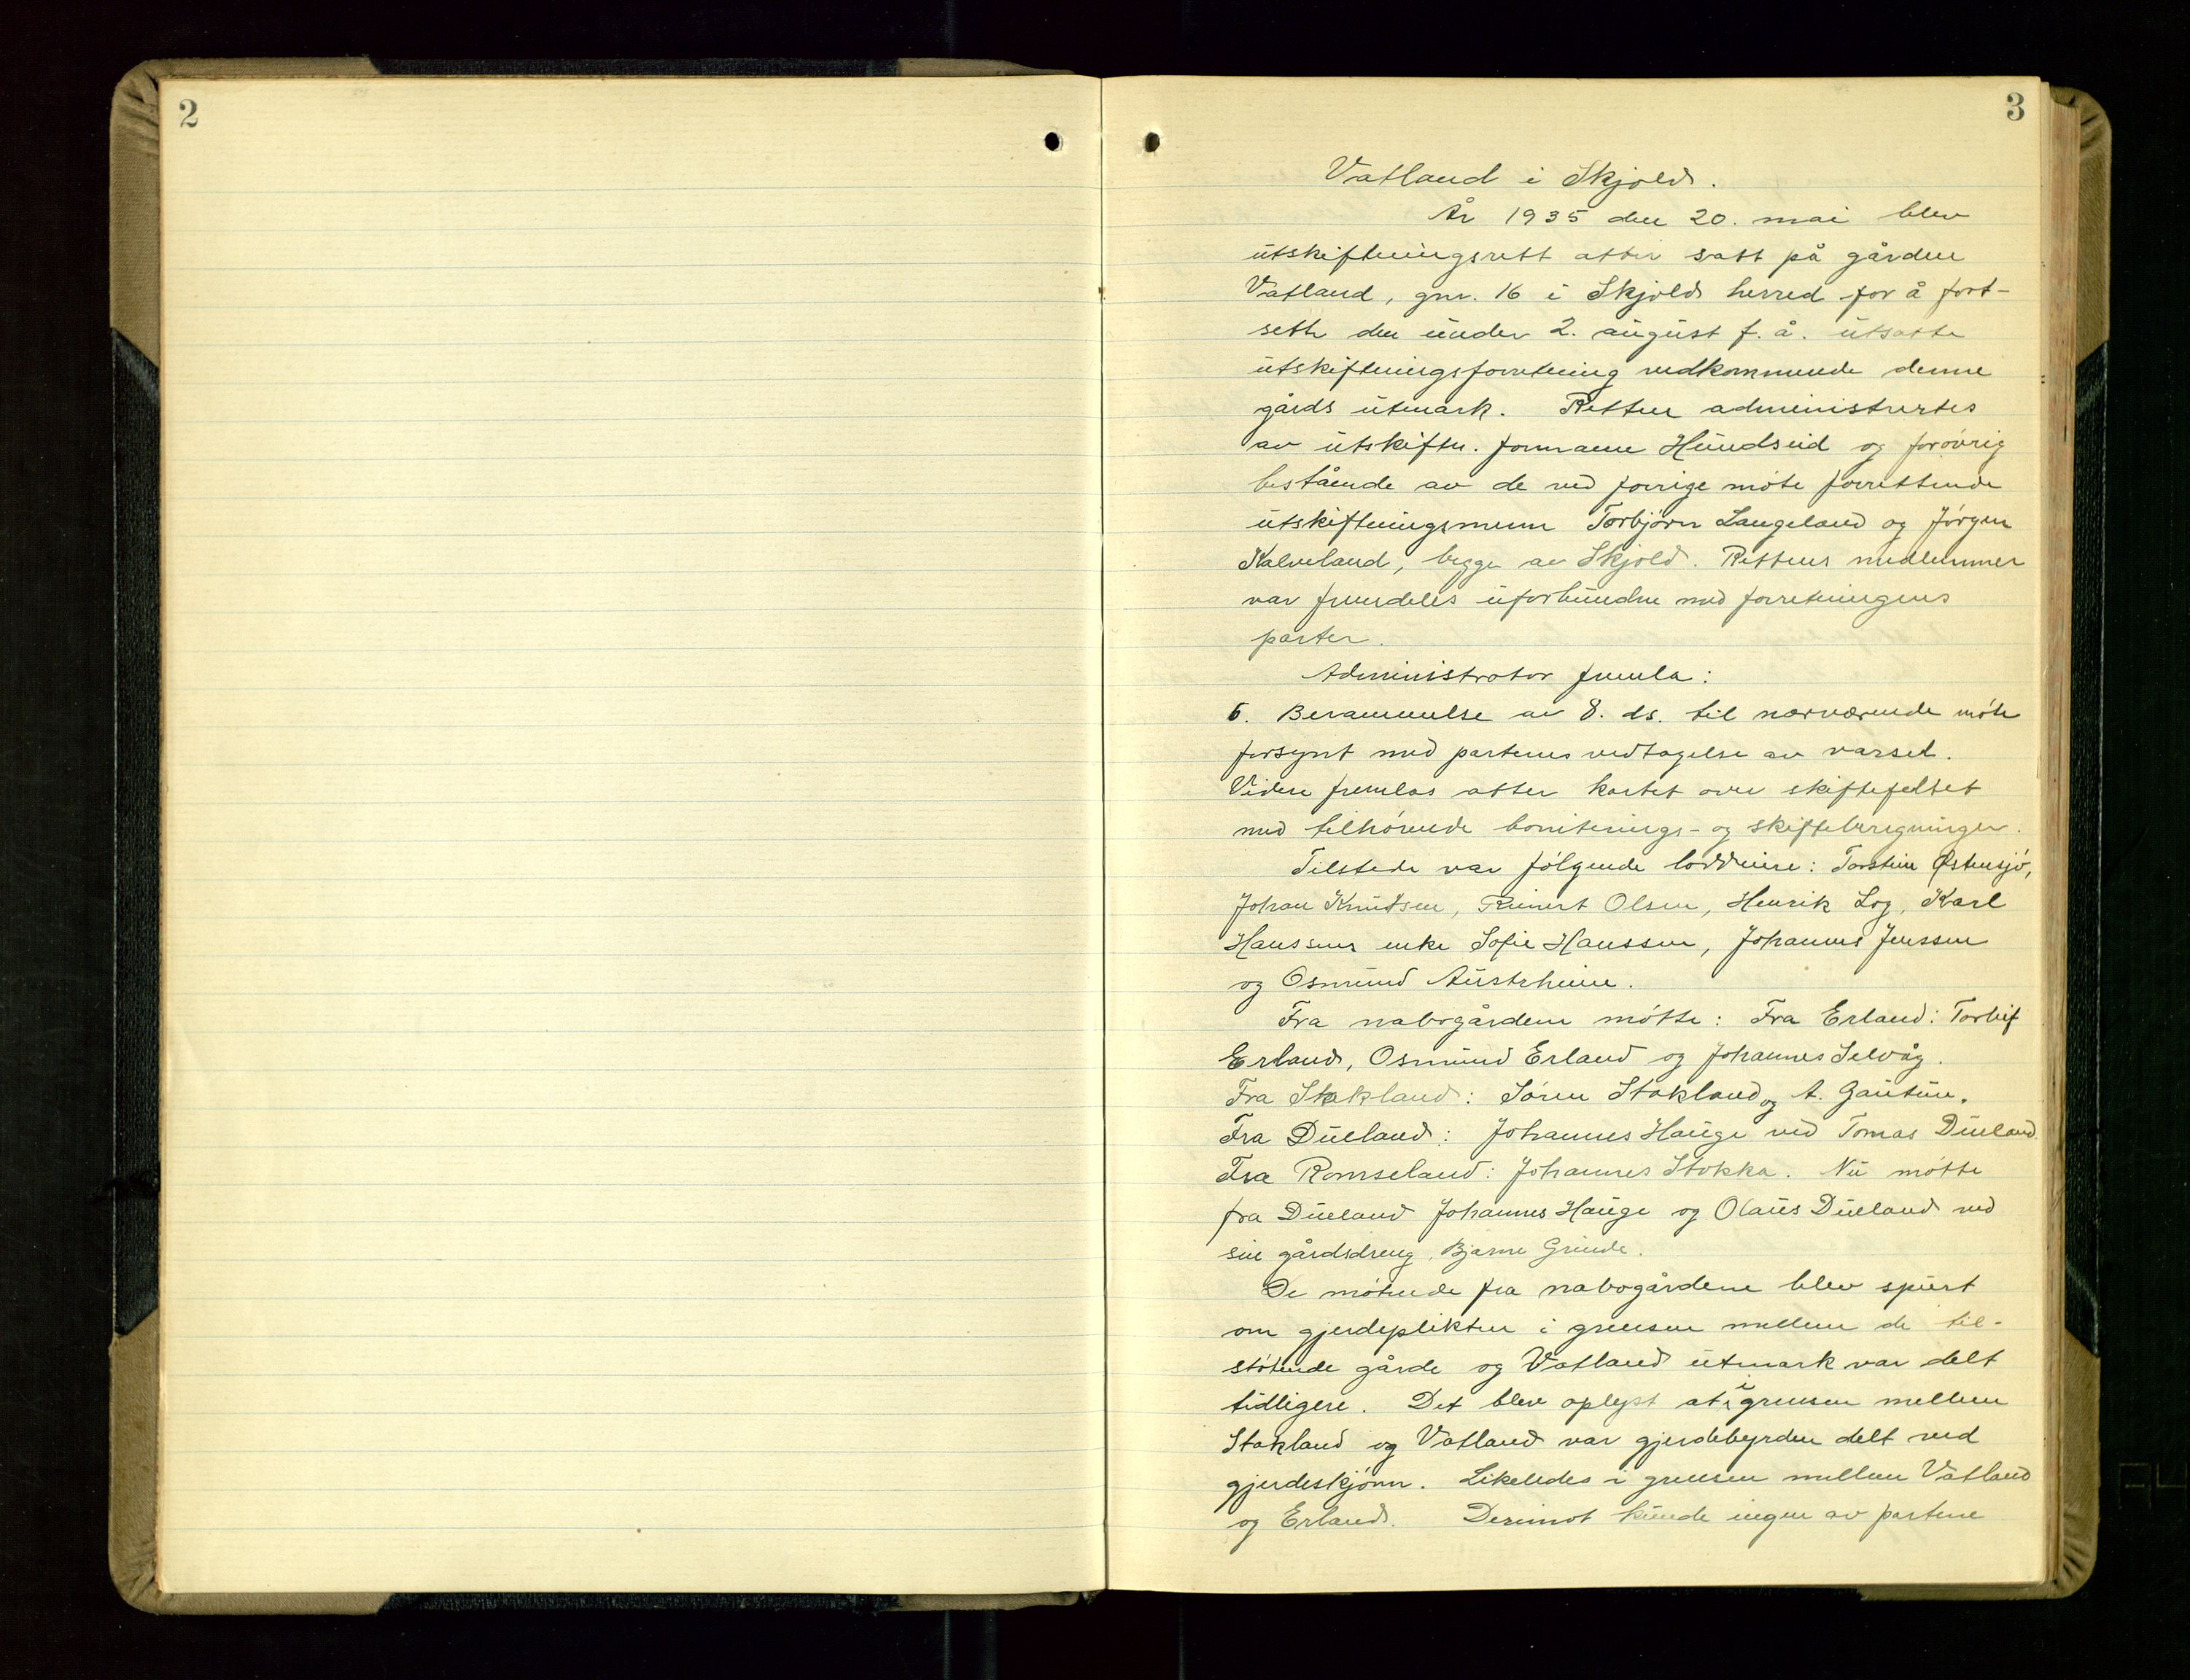 2
3
Vatland i Skjold.
År 1935 den 20. mai blev
utskiftningsrett atter satt på gården
Vatland, gnr. 16 i Skjold herred for å fort-
sette den under 2. august f. å. utsatte
utskiftningsforretning vedkommende denne
gårds utmark. Retten administrertes
av utskiftn. formann Hundseid og forøvrig
bestående av de ved forrige møte forrettende
utskiftningsmenn Torbjørn Langeland og Jørgen
Kalveland, begge av Skjold. Rettens medlemmer
var fremdeles uforbundne med forretningens
parter.
Administrator fremla:
6. Berammelse av 8. ds. til nærværende møte
forsynt med partenes vedtagelse av varsel.
Videre fremlas atter kartet over skiftefeltet
med tilhørende boniterings- og skifteberegninger.
Tilstede var følgende loddeiere: Torstein Østensjø,
Johan Knutsen, Reinert Olsen, Henrik Log, Karl
Hanssens enke Sofie Hanssen, Johannes Jenssen
og Osmund Austrheim.
Fra nabogårdene møtte: Fra Erland: Torleif
Erland, Osmund Erland og Johannes Selvåg.
Fra Stakland: Søren Stakland og A. Gautun.
Fra Dueland: Johannes Hauge ved Tomas Dueland
Fra Romseland: Johannes Stokka. Nu møtte
fra Dueland Johannes Hauge og Olaus Dueland ved
sin gårdsdreng Bjarne Grinde.
De møtende fra nabogårdene blev spurt
om gjerdeplikten i grensen mellem de til-
støtende gårde og Vatland utmark var delt
tidligere. Det blev oplyst at i grensen mellem
Stakland og Vatland var gjerdebyrden delt ved
gjerdeskjønn. Likeledes i grensen mellem Vatland
og Erland. Derimot kunde ingen av partene